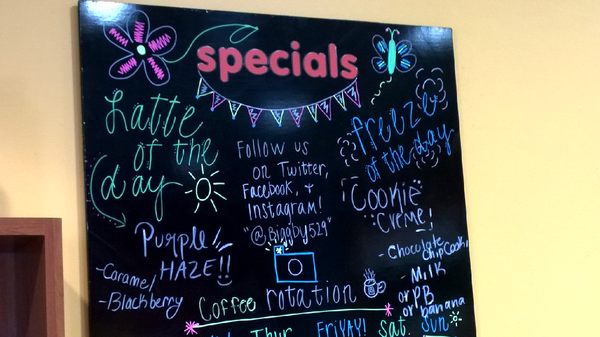 specials
Latte
of the
day
Purple
HAZE!!
-Caramel
-Blackberry
Follow us
on Twitter,
Facebook, +
Instagram!
"@Biggby529"
freeze
of the day
Cookie
Creme!
- Chocolate
Chip Cookie
- Milk
or PB
or banana
Coffee rotation
Thur. FRiYAY! Sat. Sun